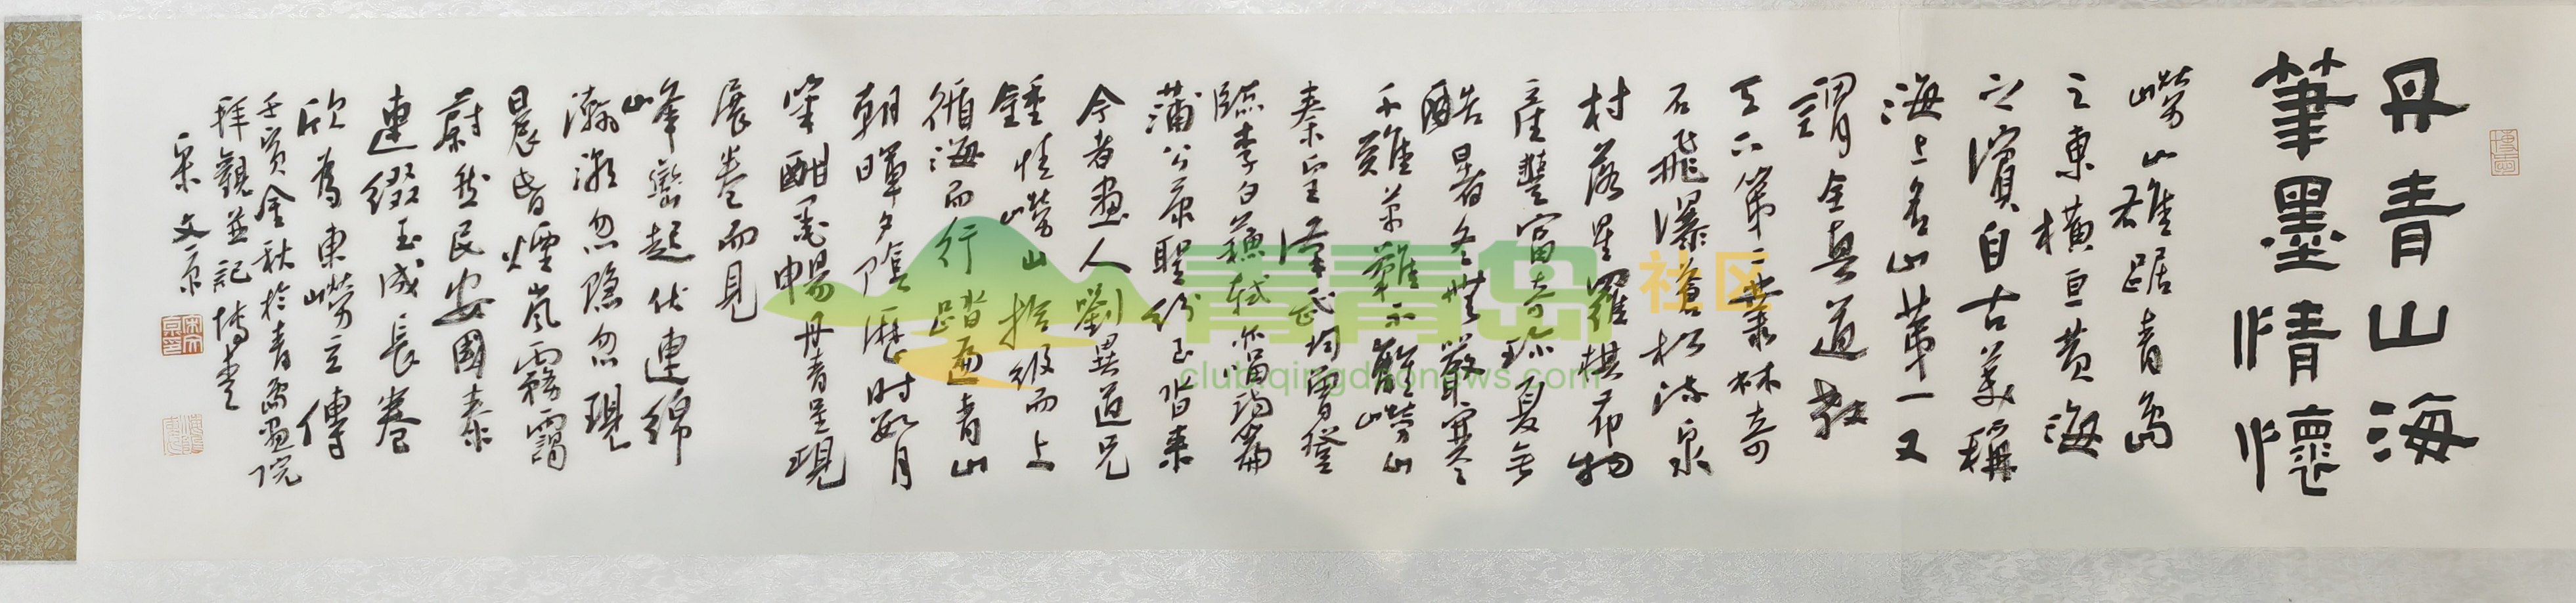 丹青山海
筆墨情懷
嶗山雄踞青島
之東橫亘黃海
之濱自古美稱
海上名山第一又
謂全真道教
天下第二叢林奇
石飛瀑蒼松流泉
村落星羅棋布物
產豐富奇珍夏無
酷暑冬無嚴寒
千難萬難不離嶗山
秦皇漢武均曾登
臨李白蘇軾亦留詩篇
蒲公康聖紛至沓來
今者畫人劉異道兄
鍾情嶗山拾級而上
循海而行踏遍青山
朝暉夕陰歷時數月
筆酣墨暢丹青呈現
展卷而見
峰巒起伏連綿
忽隱忽現
晨昏煙嵐霧靄
蔚然民安國泰
連綴玉成長卷
欣為東嶗立傳
壬寅金秋於青島畫院
拜觀並記博
宋文京
宋文京印
青青岛社区
club.qingdaonews.com